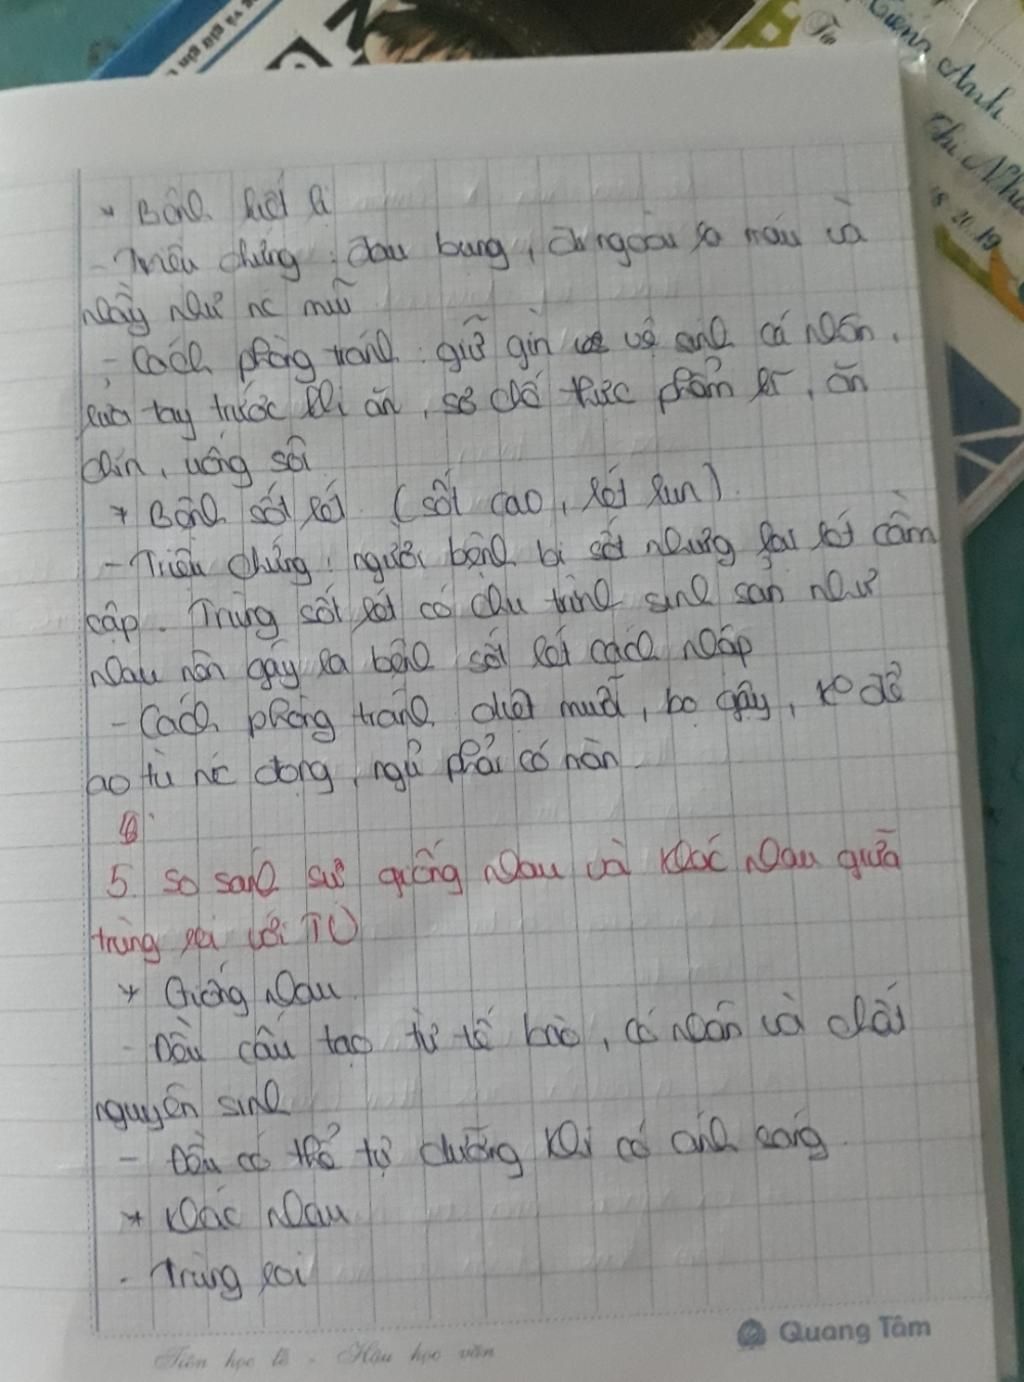 * Bệnh kiết lị
- Triệu chứng : đau bụng, đi ngoài ra máu và
nhầy như nc mũi
- Cách phòng tránh : giữ gìn vệ sinh cá nhân,
rửa tay trước khi ăn, sơ chế thực phẩm kĩ, ăn
chín, uống sôi
* Bệnh sốt rét (sốt cao, rét run)
- Triệu chứng : người bệnh bị sốt nhưng lại rét cầm
cập. Trùng sốt rét có chu trình sinh sản như
nhau nên gây ra bệnh sốt rét cách nhập
- Cách phòng tránh diệt muỗi, bọ gậy, ko để
ao tù nc đọng, ngủ phải có màn
5. So sánh sự giống nhau và khác nhau giữa
trùng roi với TV
* Giống nhau
- Đều cấu tạo từ tế bào, có nhân và chất
nguyên sinh
- Đều có thể tự dưỡng khi có ánh sáng
* Khác nhau
- Trùng roi
Tiên học lễ - Hậu học văn
Quang Tâm
Tiếng Anh
Thị Như